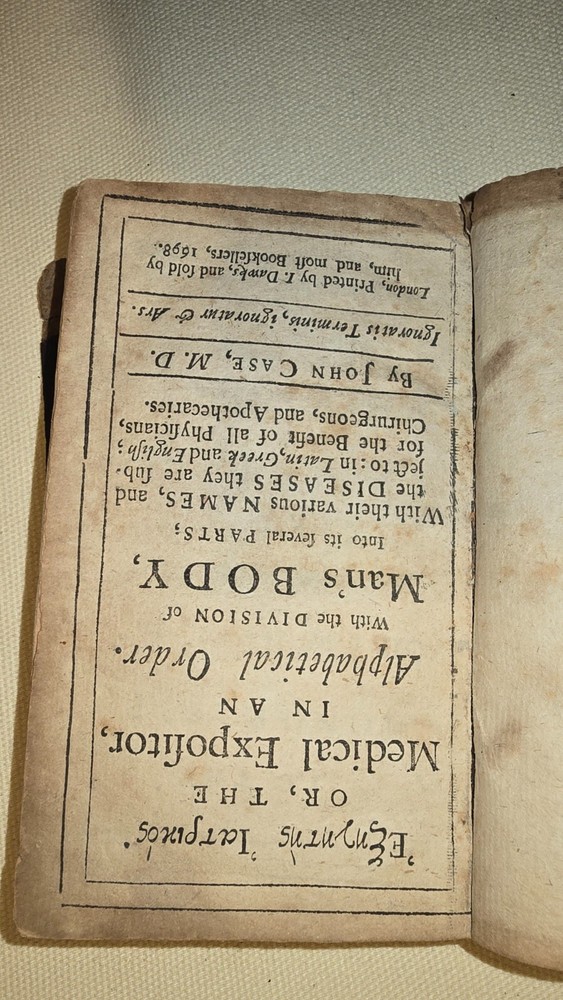 Ἐξηγητὴς Ἰατρικός·
OR, THE
Medical Expoſitor,
IN AN
Alphabetical Order.
With the DIVISION of
Man's BODY,
Into its ſeveral PARTS;
With their various NAMES, and
the DISEASES they are ſub-
ject to: in Latin, Greek and Engliſh;
for the Benefit of all Phyſicians,
Chirurgeons, and Apothecaries.
By JOHN CASE, M. D.
Ignoratis Terminis, ignoratur & Ars.
London, Printed by I. Dawks, and ſold by
him, and moſt Bookſellers, 1698.